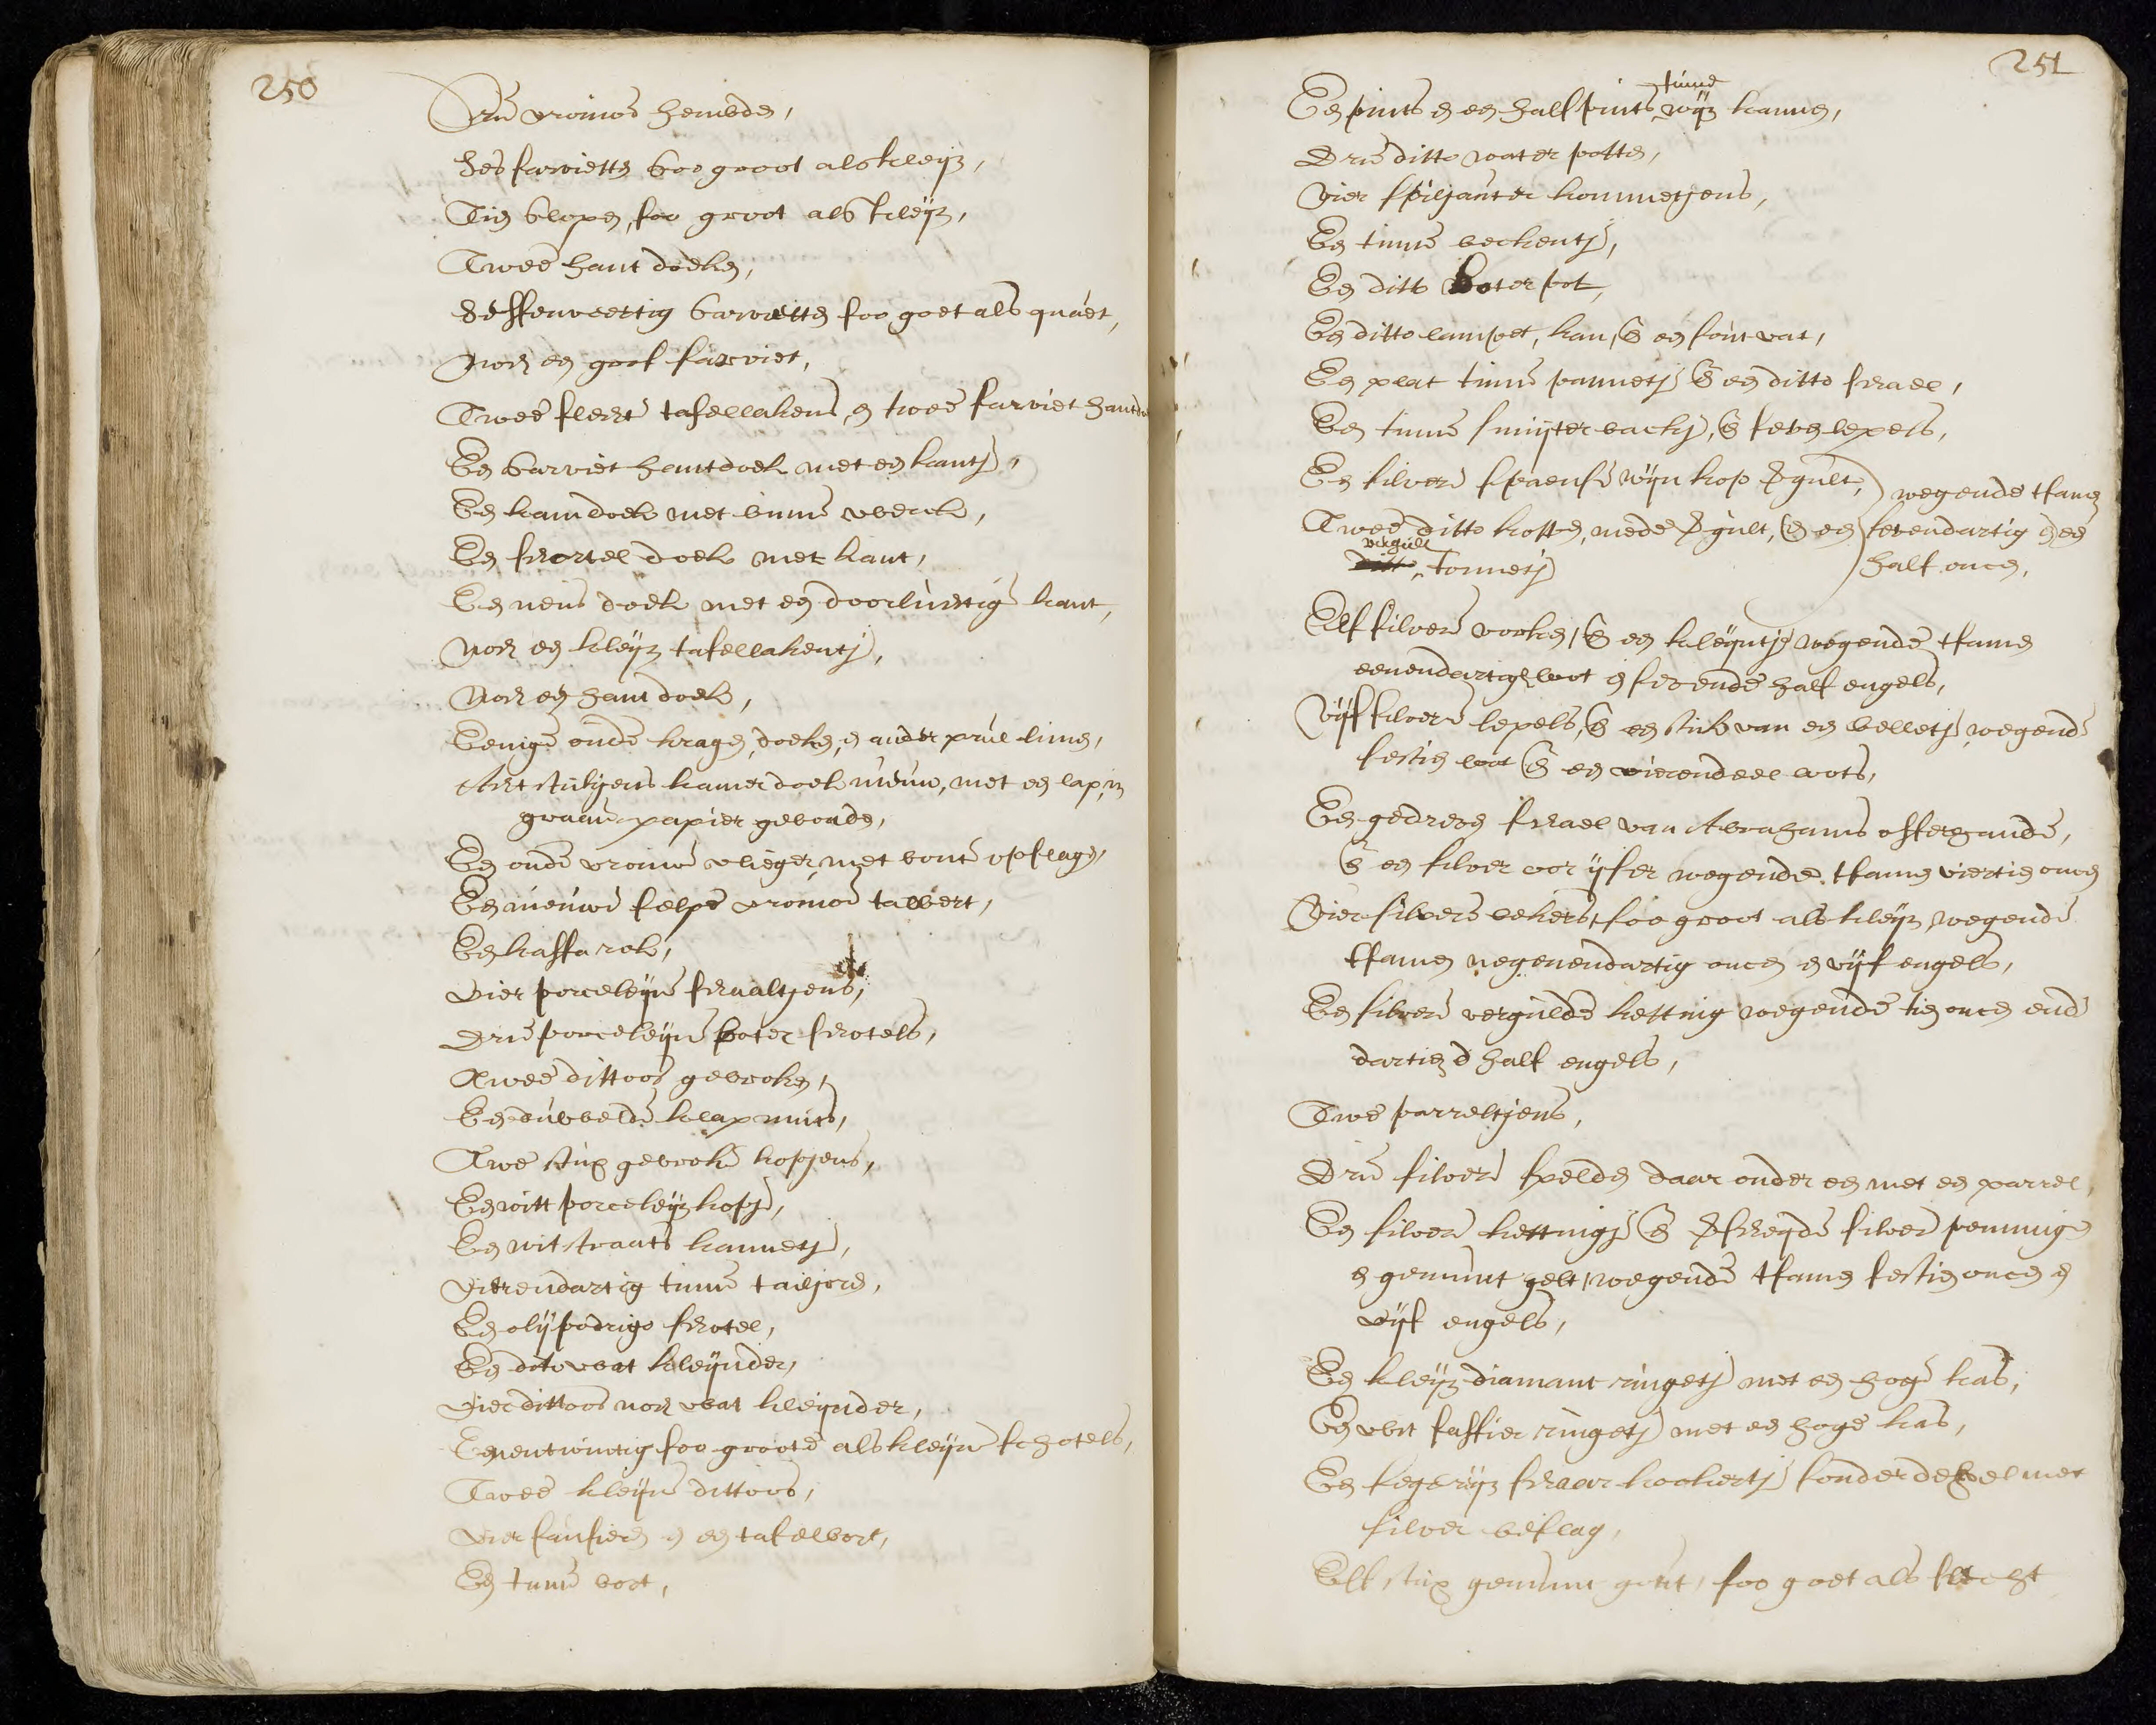 250
Drie vrouwe hembde,
Ses servietten soo groot als kleyn,
Tien slopen, soo groot als kleyn,
Twee hant doeken,
Sessenveertig servietten soo goet als quaet,
Noch een groot serviet,
Twee slechte tafellakens, en twee serviet hantdoe
Een serviet hantdoek met een kantje,
Een kamdoek met binne werck,
Een schortel doek met kant,
Een neus doek met een doorluchtige kant,
Noch een kleyn tafellakentje,
Noch een hant doek,
Eenige oude kragen, doeken, en ander prul linne,
Acht stukjens kamerdoek nieuw, met een lap, in
graau papier gevonde,
Een oude vrouwe vlieger, met bonte opslage,
Een nieuwe felpe vrouwe tabbert,
Een kaffa rok,
Vier porceleyne schaaltjens,
Drie porceleyne boter schotels,
Twee dittoos gebroken,
Een dubbelde klapmuts,
Twe stux gebroke kopjens,
Een witt porceleyn kopje,
Een wit straats kannetje,
Vierendartig tinne tailjore,
Een olijpodrigo schotel,
Een dito wat kleynder,
Vier dittoos noch wat kleynder,
Eenentwintig soo groote als kleyne schotels,
Twee kleyne dittoos,
Vier sausieren en een tafelbort,
Een tinne bort,
251
tinne
Een pints en een half pints wijn kanne,
Drie ditto water potten,
Vier spiljauter kommetjens,
Een tinne beckentje,
Een ditto boter pot,
Een ditto lampet, kan, en een sout vat,
Een plat tinne pannetje en een ditto schael,
Een tinne snuyter backje, en seven lepels,
Een silvere spaense wijn kop vergult,
Twee ditto koppen, mede vergult, en een
vergult
ditto tonnetje
wegende tsamen
sevendartig en een
half once,
Elf silvere vorken, en een kleyntje wegende tsamen
eenendartigh loot en sevende half engels,
Vijf silvere lepels, en een stuk van een belletje, wegende
sestien loot en een vierendeel loots,
Een gedreve schael van Abrahams offerhande,
en een silver oor ijser wegende tsamen viertien oncen
Vier silvere bekers, soo groot als kleyn, wegende
tsamen negenendartig oncen en vijf engels,
Een silvere vergulde ketting wegende tien oncen ende
dartien d half engels,
Twe parreltjens,
Drie silvere spelden daar onder een met een parrel,
Een silvere kettingje en verscheyde silvere penninge
en gemunt gelt, wegende tsamen sestien oncen en
vijf engels,
Een kleyn diamant ringetje met een hoge kas,
Een wit saffier ringetje met een hoge kas,
Een segrijn schaar kookertje sonder deksel met
silver beslag,
Elf stux gemunt gout, soo goet als slecht